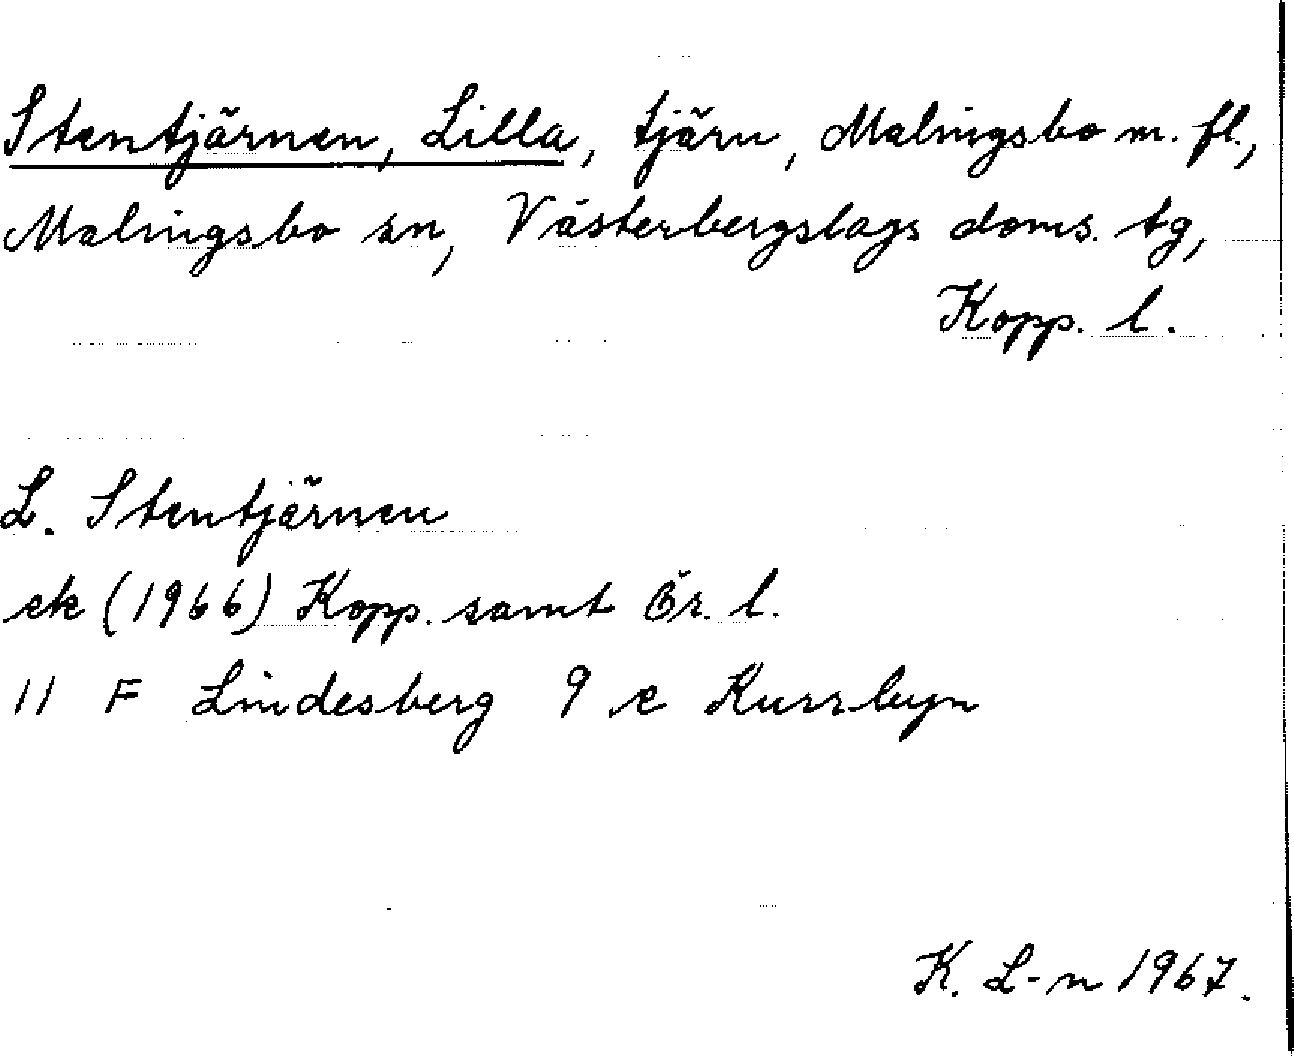 Stentjärnen, Lilla, tjärn, Malingsbo m. fl.,
Malingsbo sn, Västerbergslags doms. tg,
Kopp. l.
L. Stentjärnen
ek (1966) Kopp. samt Ör. l.
11 F Lindesberg 9 e Kurrbyn
K. L-n 1967.